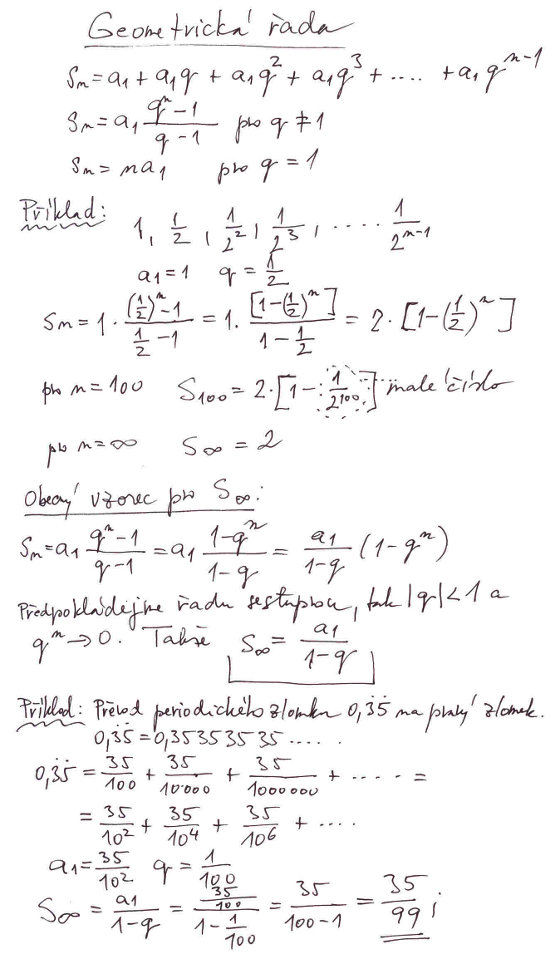 Geometrická řada
Sn = a1 + a1q + a1q² + a1q³ + .... + a1qⁿ⁻¹
Sn = a1 (qⁿ-1)/(q-1) pro q ≠ 1
Sn = na1 pro q = 1
Příklad: 1, 1/2, 1/2², 1/2³, .... 1/2ⁿ⁻¹
a1 = 1 q = 1/2
Sn = 1 · ((1/2)ⁿ-1)/(1/2-1) = 1. [1-(1/2)ⁿ]/(1-1/2) = 2 · [1-(1/2)ⁿ]
pro n = 100 S100 = 2·[1 - 1/2¹⁰⁰] malé číslo
pro n = ∞ S∞ = 2
Obecný vzorec pro S∞:
Sn = a1 (qⁿ-1)/(q-1) = a1 (1-qⁿ)/(1-q) = a1/(1-q) (1-qⁿ)
Předpokládejme řadu sestupnou, tak |q| < 1 a
qⁿ → 0. Takže S∞ = a1/(1-q)
Příklad: Převod periodického zlomku 0,3̇5̇ na pravý zlomek.
0,3̇5̇ = 0,35353535 .....
0,3̇5̇ = 35/100 + 35/10000 + 35/1000000 + ..... =
= 35/10² + 35/10⁴ + 35/10⁶ + ....
a1 = 35/10² q = 1/100
S∞ = a1/(1-q) = (35/100)/(1-1/100) = 35/(100-1) = 35/99 ;